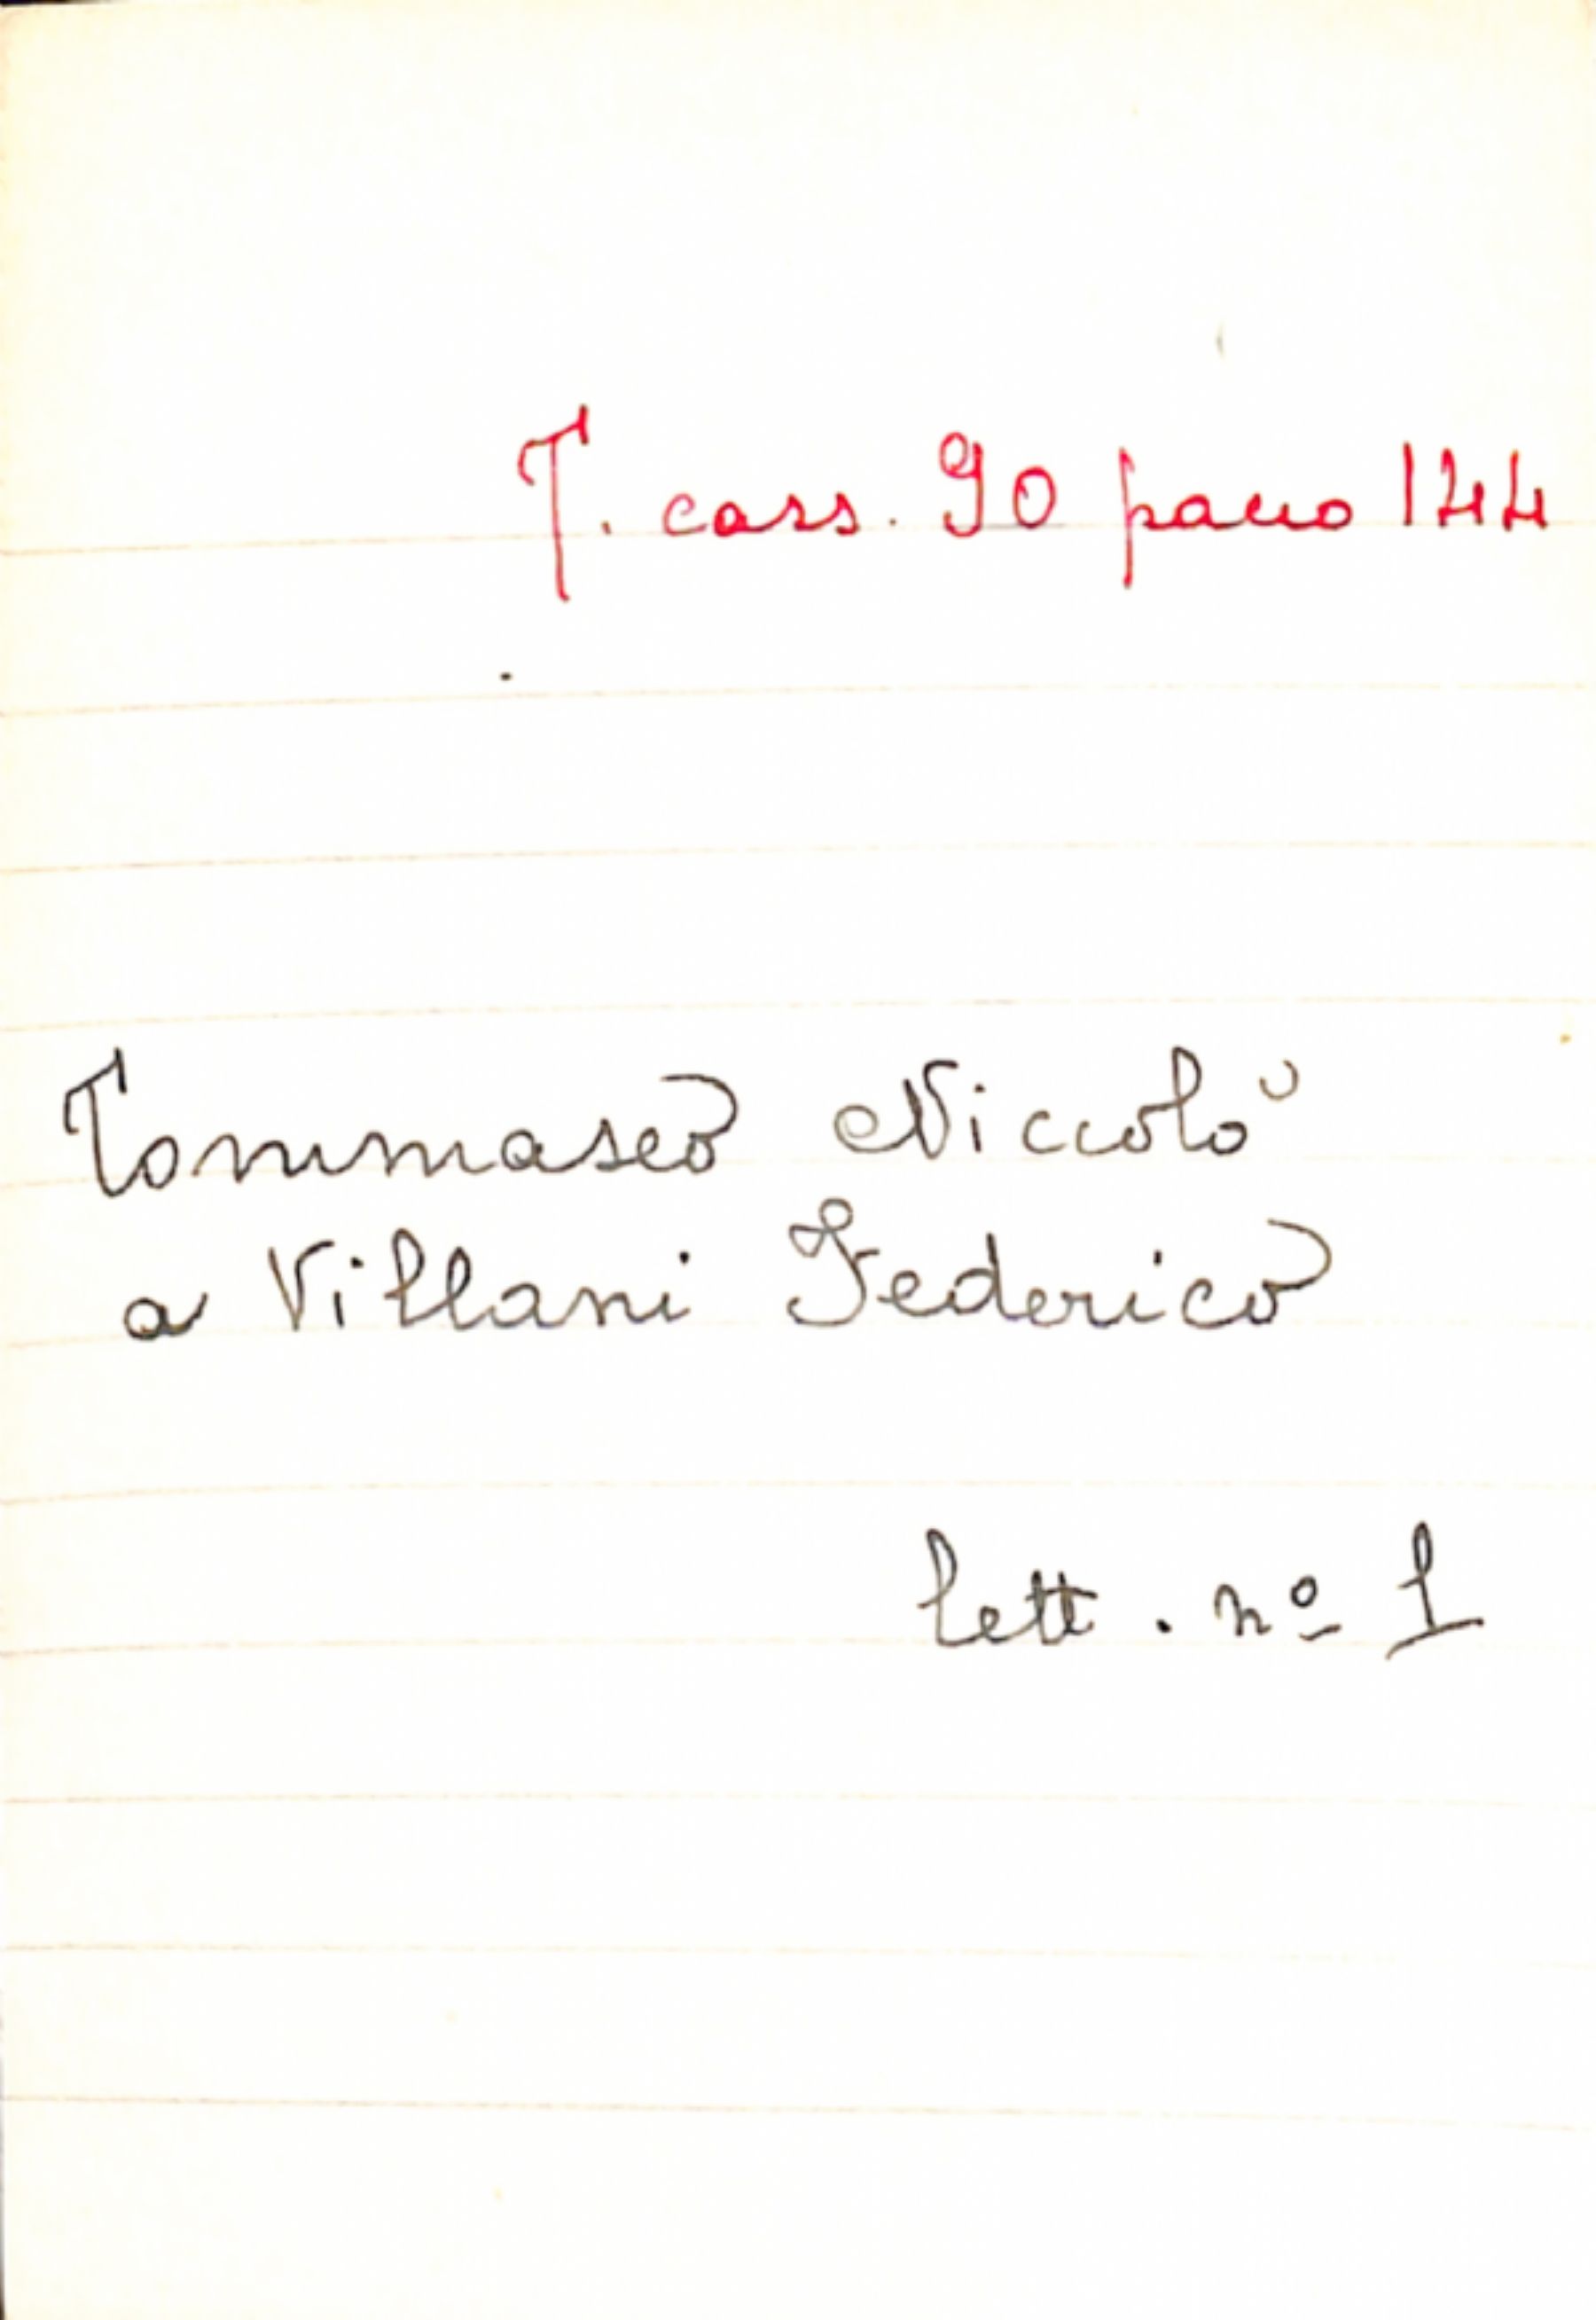 T. cass. 90 pacco 144
Tommaseo Niccolò
a Villani Federico
lett. nº 1